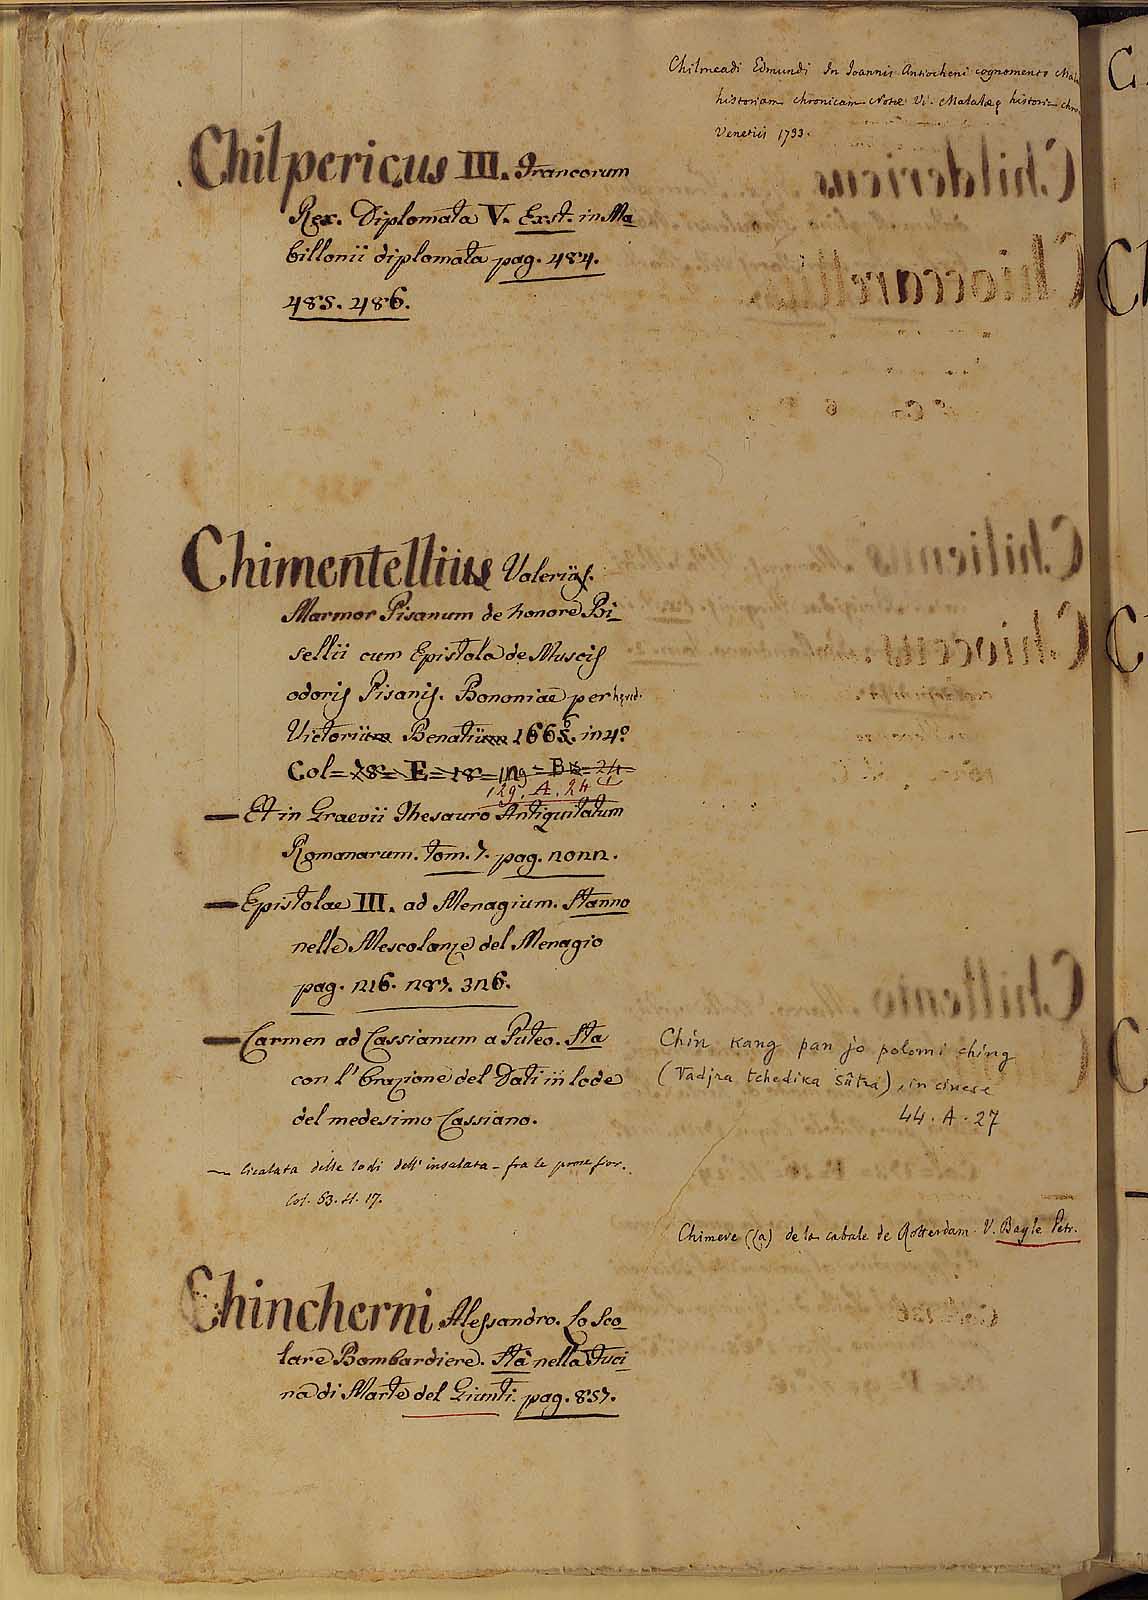 Chilmeadi Edmundi In Joannis Antiocheni cognomento
historiam chronicam Notæ Vi. Malalæ historia
Venetiis 1733.
Chilpericus III. Francorum
Rex. Diplomata V. Exst. in Ma
billonii diplomata pag. 484.
485. 486.
Chimentellius Valerius.
Marmor Pisanum de honore Bi
sellii cum Epistola de Muscis
odoris Pisanis. Bononiæ per hered.
Victorii Benatii 1666. in 4º
Col=
129. A. 24
Et in Graevii Thesauro Antiquitatum
Romanarum. tom. 7. pag. nonn.
Epistolae III. ad Menagium. Stanno
nelle Mescolanze del Menagio
pag. 216. 287. 326.
Carmen ad Cassianum a Puteo. Sta
con l'Orazione del Dati in lode
del medesimo Cassiano.
Cicalata delle lodi dell'insalata - fra le prose fior.
Col. 63. H. 17.
Chin Kang pan jo polomi ching
(Vadjra tchedika Sûtra), in cinese
44. A. 27
Chimere ((a) de la cabale de Rotterdam. V. Bayle Petr.
Chincherni Alessandro. Lo Sco
lare Bombardiere. Stà nella Fuci
na di Marte del Giunti. pag. 857.